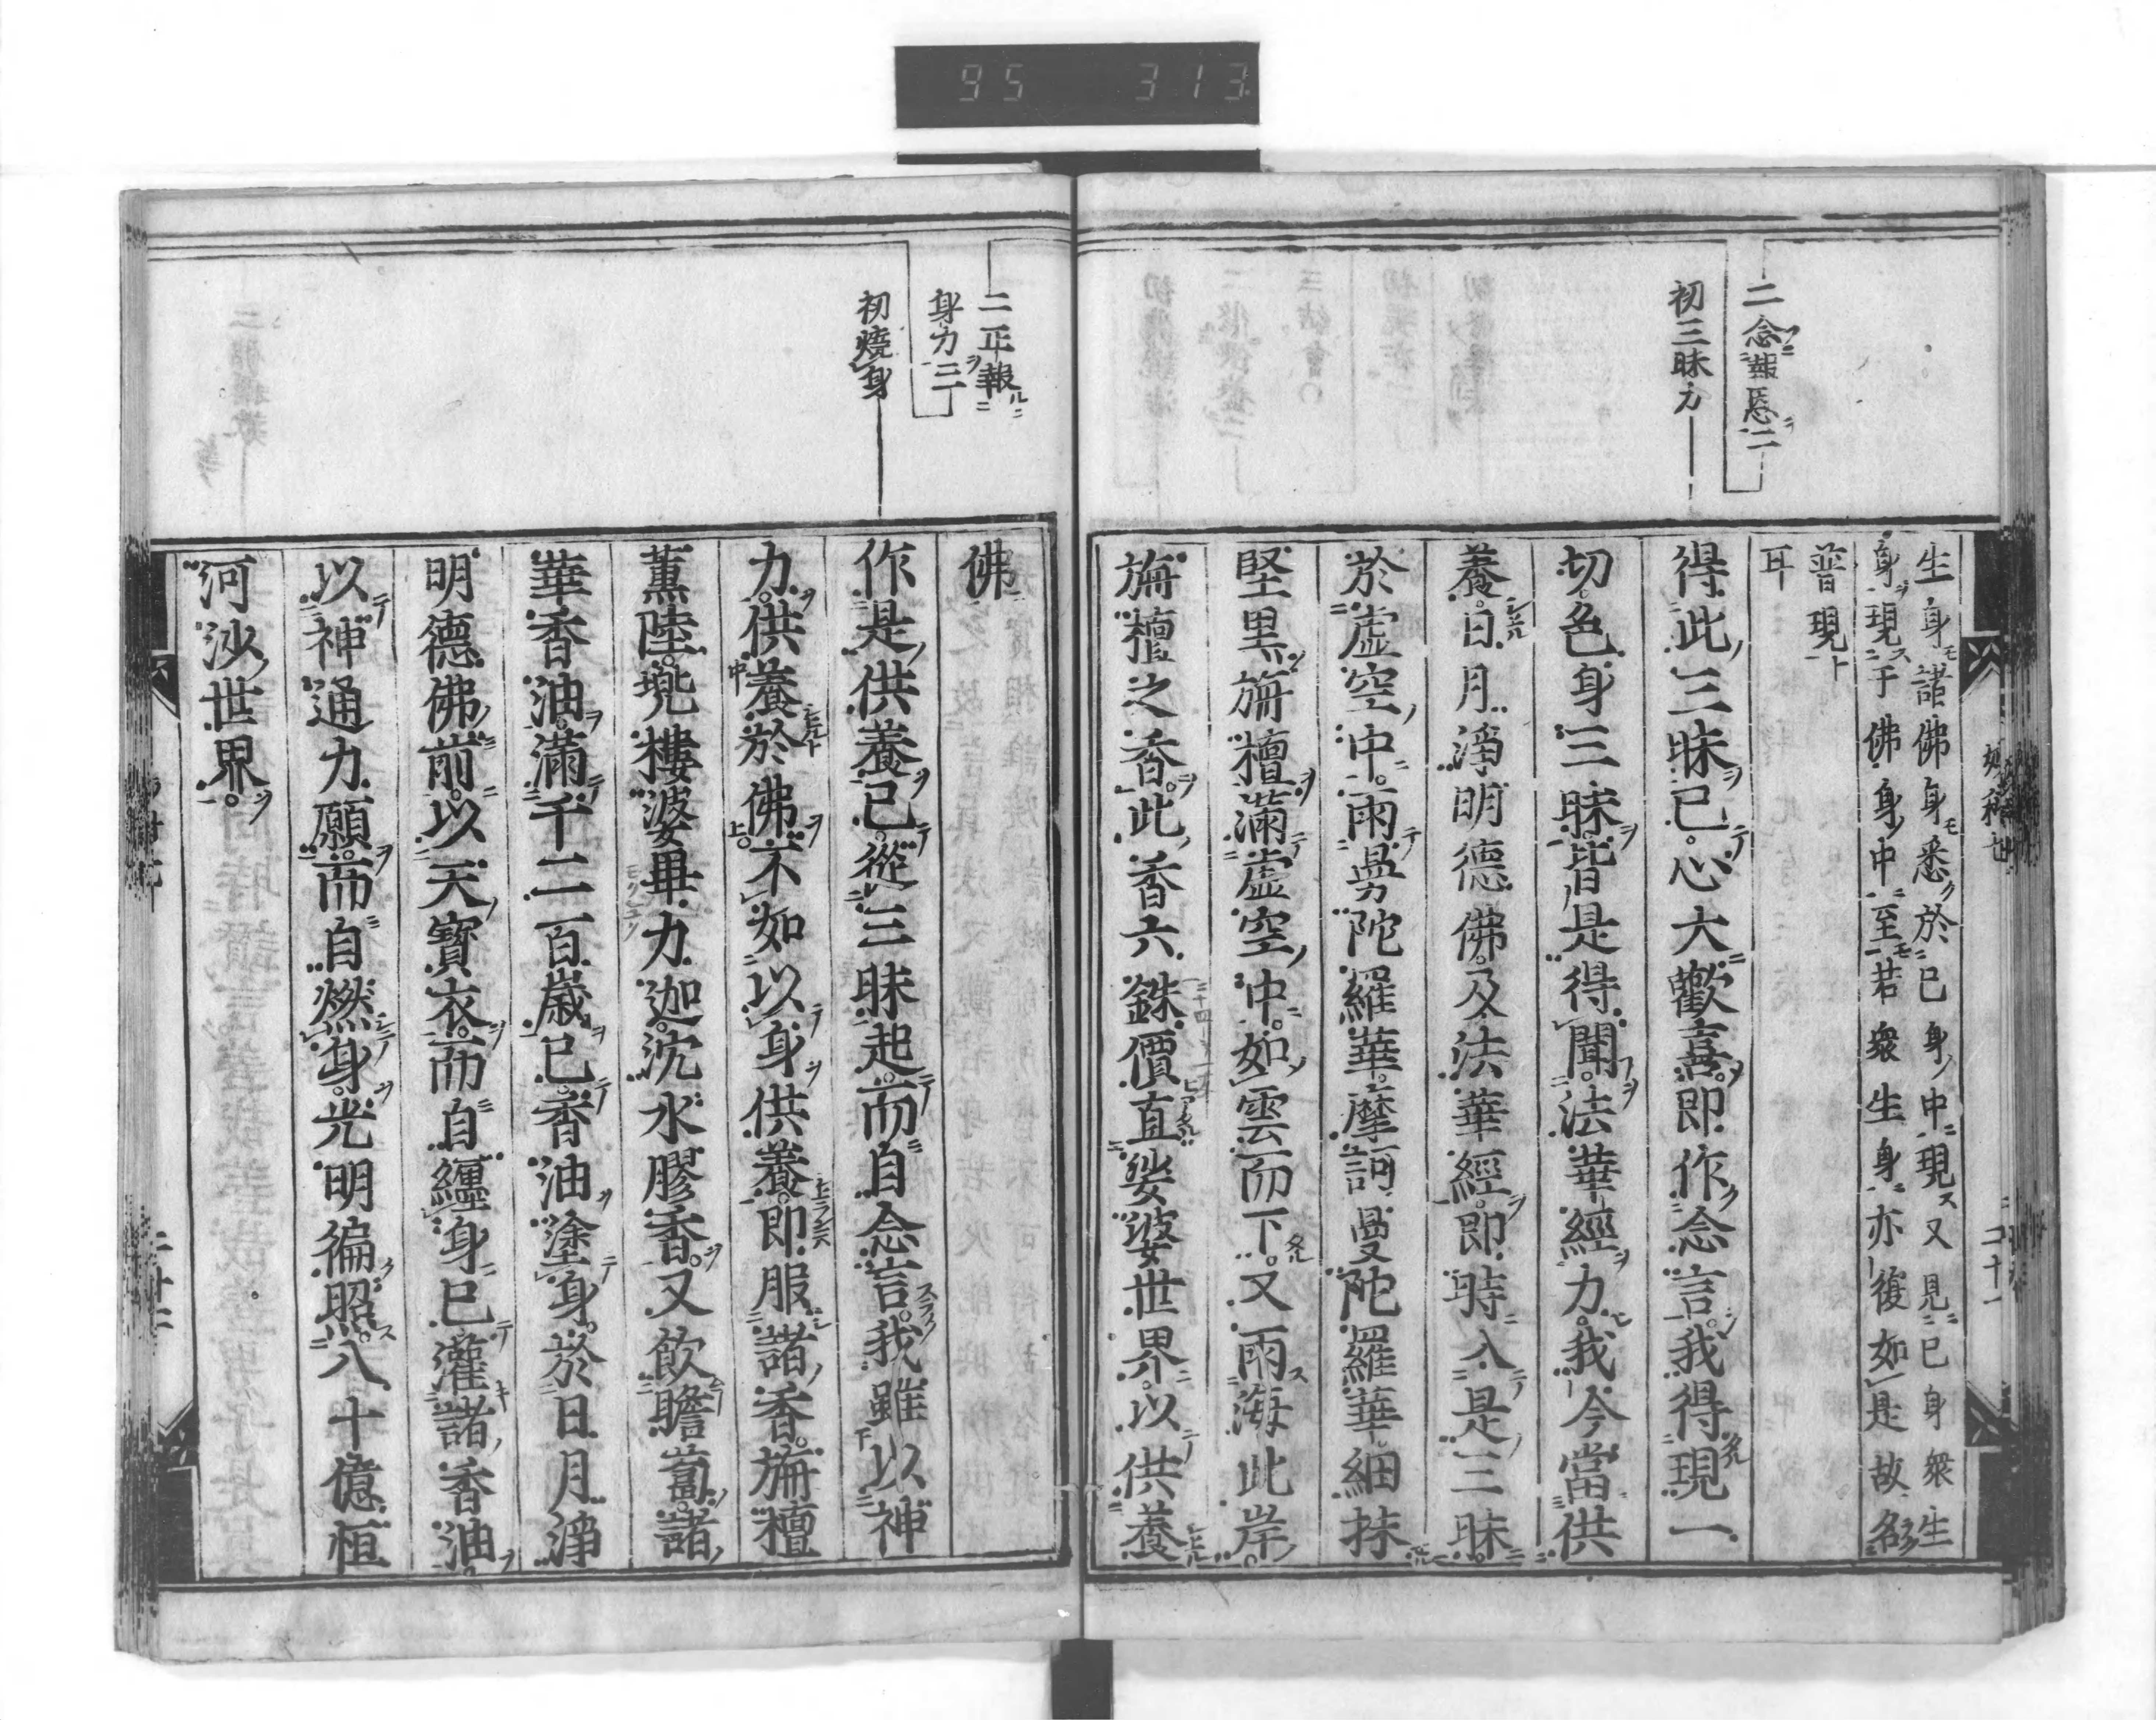 95 313
二念報恩二
初三昧力
生身諸佛身悉於已身中現又見已身衆生
身現于佛身中至若衆生身亦復如是故名
普現
耳
得此三昧已心大歡喜即作念言我得現一
切色身三昧皆是得聞法華經力我今當供
養日月淨明德佛及法華經即時入是三昧
於虛空中雨曼陀羅華摩訶曼陀羅華細抹
堅黑旃檀滿虛空中如雲而下又雨海此岸
旃檀之香此香六銖價直娑婆世界以供養
二正報
身力三
初燒身
佛
作是供養已從三昧起而自念言我雖以神
力供養於佛不如以身供養即服諸香旃檀
薰陸兜樓婆畢力迦沈水膠香又飲瞻蔔諸
華香油滿千二百歲已香油塗身於日月淨
明德佛前以天寶衣而自纏身已灌諸香油
以神通力願而自燃身光明徧照八十億恒
河沙世界